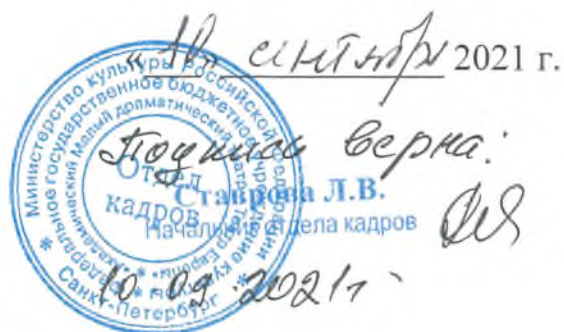 «10» сентября 2021 г.
Подпись верна:
Ставрова Л.В.
Начальник отдела кадров
10.09.2021г
Министерство культуры Российской Федерации
Федеральное государственное бюджетное учреждение культуры
Академический Малый драматический театр - Театр Европы
Санкт-Петербург
Отдел
кадров